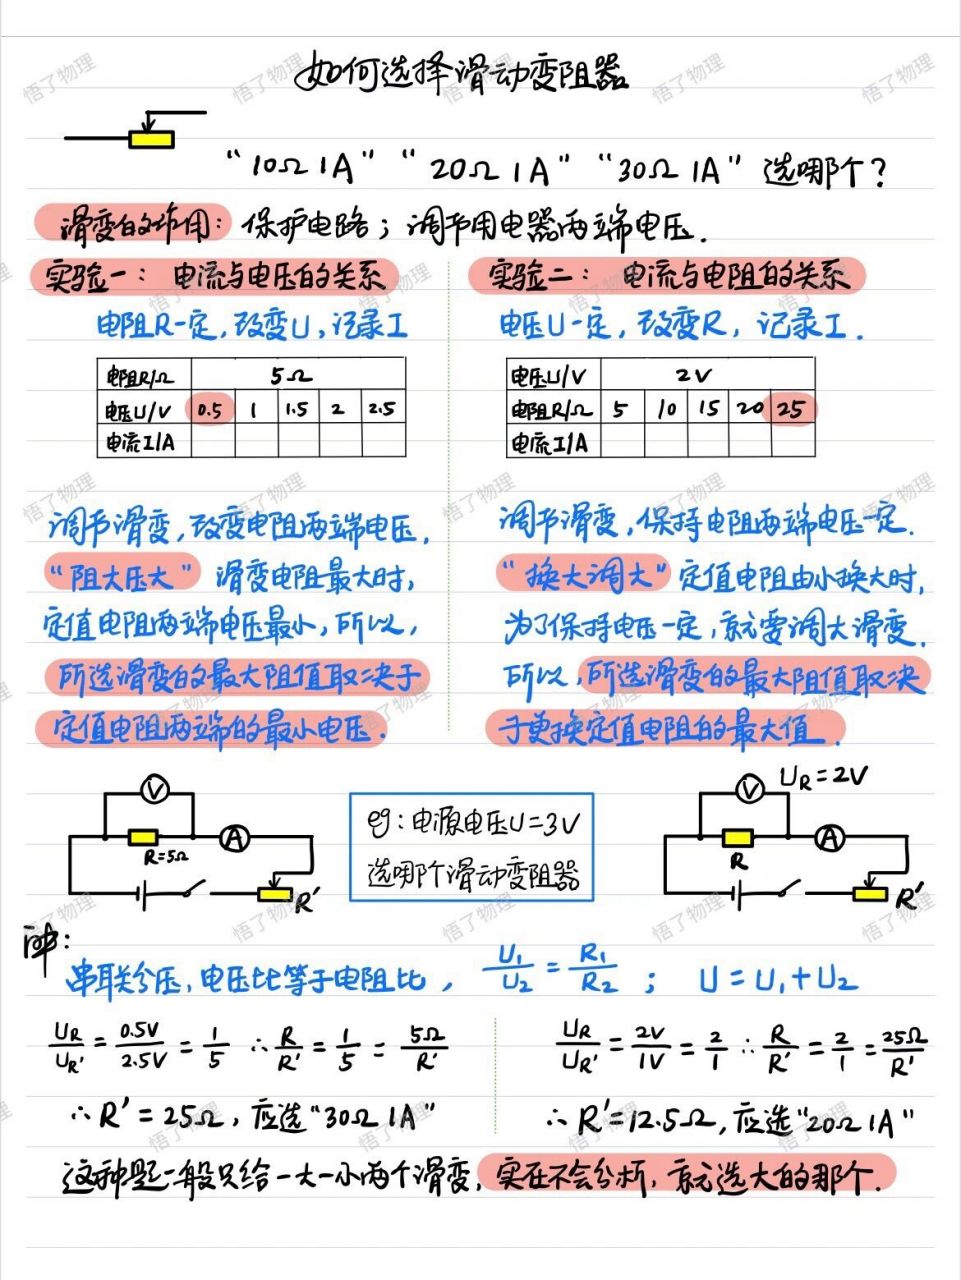 如何选择滑动变阻器
“10Ω 1A” “20Ω 1A” “30Ω 1A” 选哪个?
滑变的作用: 保护电路; 调节用电器两端电压.
实验一: 电流与电压的关系
电阻R一定, 改变U, 记录I
电阻R/Ω 5Ω
电压U/V 0.5 1 1.5 2 2.5
电流I/A
调节滑变, 改变电阻两端电压,
“阻大压大” 滑变电阻最大时,
定值电阻两端电压最小, 所以,
所选滑变的最大阻值取决于
定值电阻两端的最小电压.
实验二: 电流与电阻的关系
电压U一定, 改变R, 记录I.
电压U/V 2V
电阻R/Ω 5 10 15 20 25
电流I/A
调节滑变, 保持电阻两端电压一定.
“换大调大” 定值电阻由小换大时,
为了保持电压一定, 就要调大滑变.
所以, 所选滑变的最大阻值取决
于更换定值电阻的最大值.
V
A
R=5Ω
R'
eg: 电源电压U=3V
选哪个滑动变阻器
UR=2V
V
A
R
R'
解:
串联分压, 电压比等于电阻比, U1/U2 = R1/R2 ; U=U1+U2
UR/UR' = 0.5V/2.5V = 1/5 ∴ R/R' = 1/5 = 5Ω/R'
∴ R'=25Ω, 应选“30Ω 1A”
UR/UR' = 2V/1V = 2/1 ∴ R/R' = 2/1 = 25Ω/R'
∴ R'=12.5Ω, 应选“20Ω 1A”
这种题一般只给一大一小两个滑变, 实在不会分析, 就选大的那个.
悟了物理